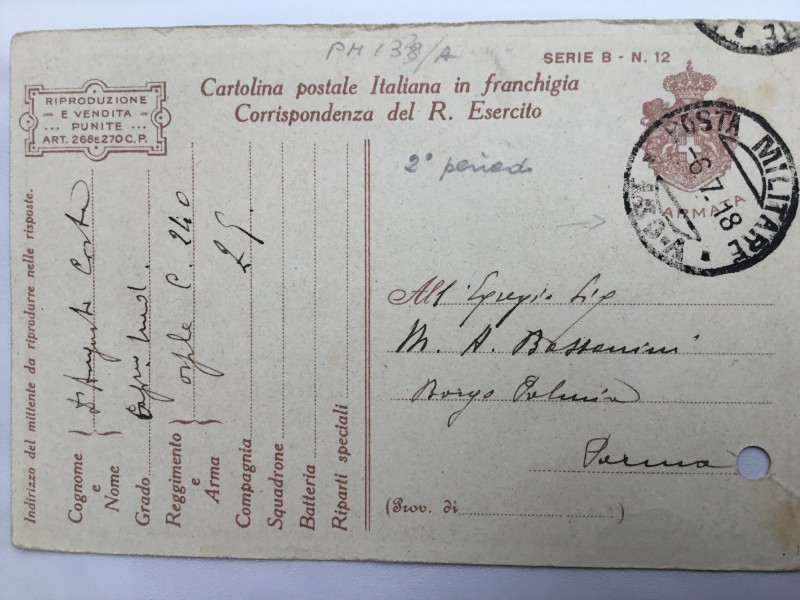 PM 133/A
SERIE B - N. 12
Cartolina postale Italiana in franchigia
Corrispondenza del R. Esercito
RIPRODUZIONE
E VENDITA
... PUNITE ...
ART. 268 E 270 C. P.
2° periodo
POSTA MILITARE
-6.7.18
ARMATA
All' Egregio Sig
M. A. Bassanini
Borgo
Parma
(Prov. di )
Indirizzo del mittente da riprodurre nelle risposte.
Cognome e Nome } D Augusto Costa
Grado
Reggimento e Arma } C. 240
Compagnia
Squadrone
Batteria
Riparti speciali